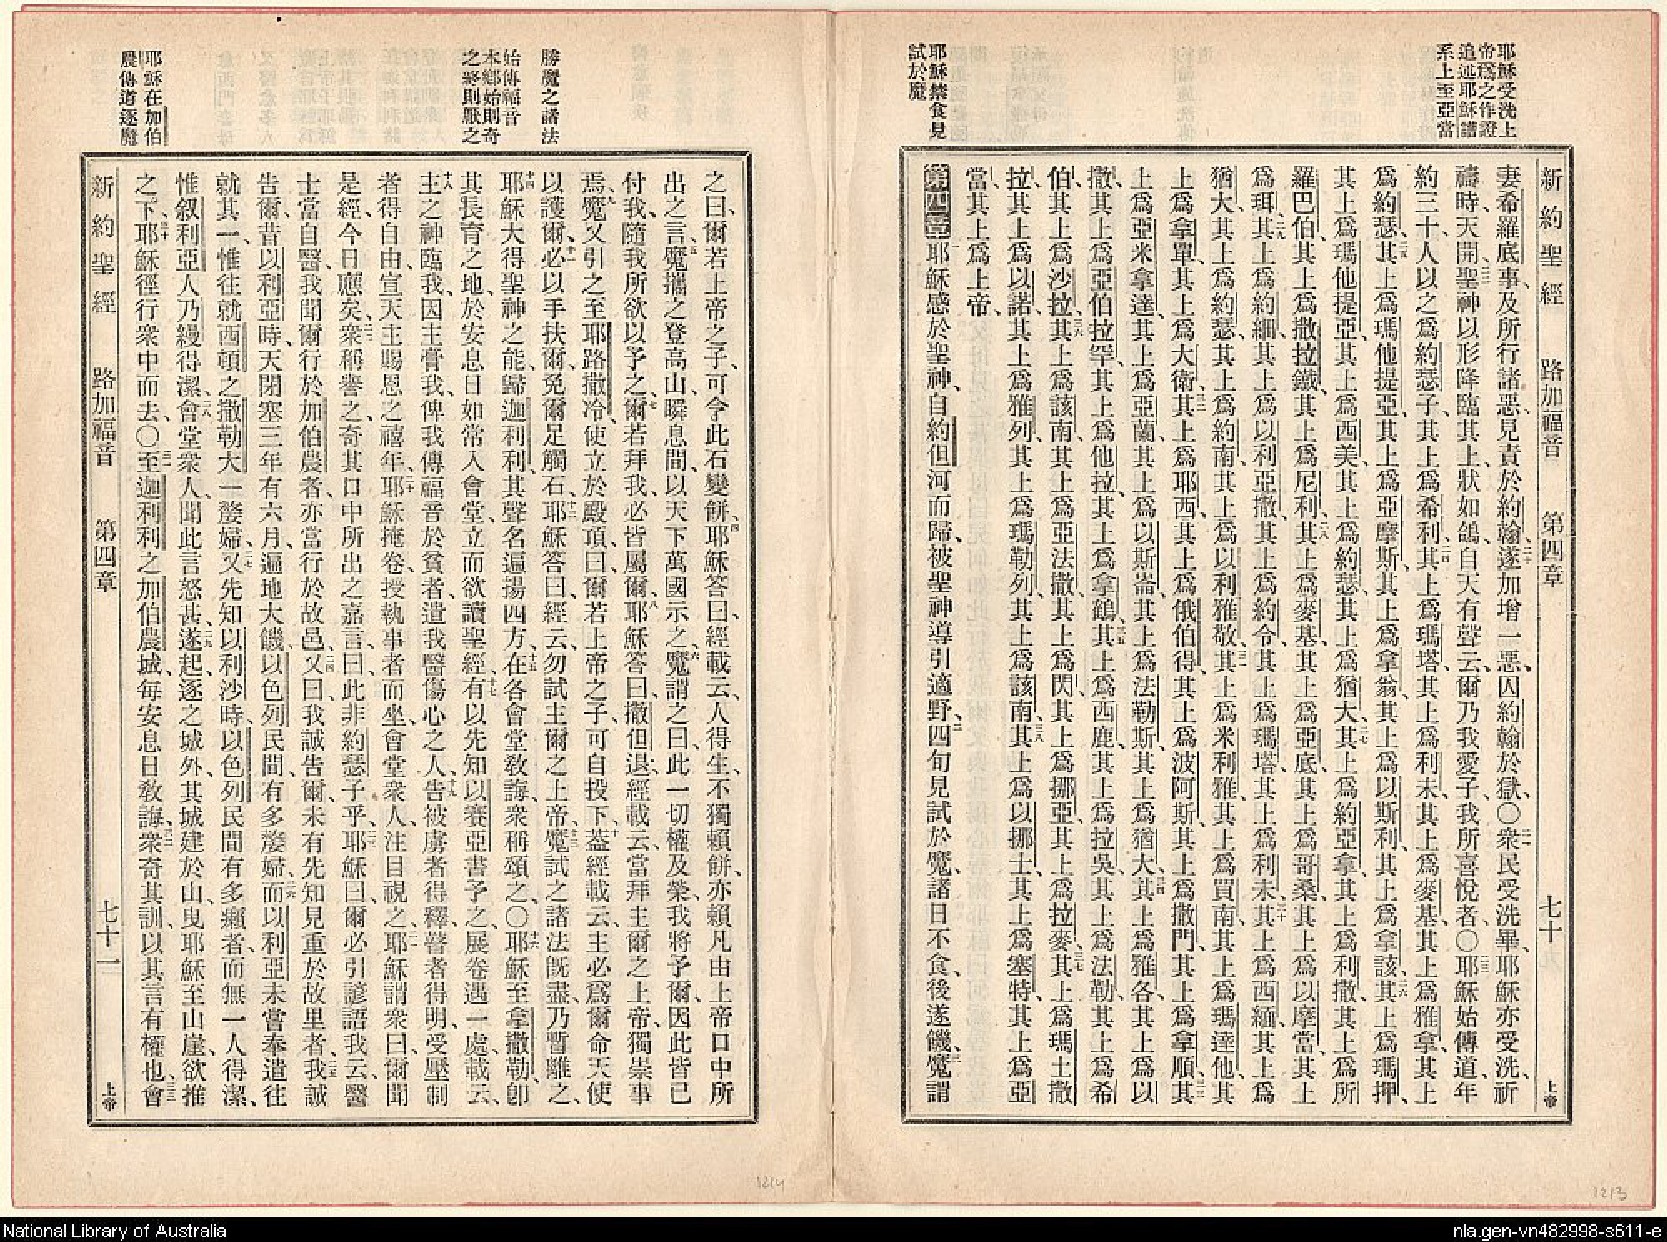 耶穌受洗上
帝爲之作證
追延耶穌譜
系上至亞當
耶穌禁食見
試於魔
新約聖經 路加福音 第四章 七十九 上帝
妻希羅底事、及所行諸惡、見責於約翰、遂加增一惡、囚約翰於獄、〇衆民受洗畢、耶穌亦受洗、祈
禱時、天開、聖神以形降臨其上、狀如鴿、自天有聲云、爾乃我愛子、我所喜悅者、〇耶穌始傳道、年
約三十、人以之爲約瑟子、其上爲希利、其上爲瑪塔、其上爲利未、其上爲麥基、其上爲雅拿、其上
爲約瑟、其上爲瑪他提亞、其上爲亞摩斯、其上爲拿翁、其上爲以斯利、其上爲拿該、其上爲瑪押、
其上爲瑪他提亞、其上爲西美、其上爲約瑟、其上爲猶大、其上爲約亞拿、其上爲利撒、其上爲所
羅巴伯、其上爲撒拉鐵、其上爲尼利、其上爲麥基、其上爲亞底、其上爲哥桑、其上爲以摩當、其上
爲珥、其上爲約細、其上爲以利亞撒、其上爲約令、其上爲瑪塔、其上爲利未、其上爲西緬、其上爲
猶大、其上爲約瑟、其上爲約南、其上爲以利雅敬、其上爲米利雅、其上爲買南、其上爲瑪達他、其
上爲拿單、其上爲大衛、其上爲耶西、其上爲俄伯得、其上爲波阿斯、其上爲撒門、其上爲拿順、其
上爲亞米拿達、其上爲亞蘭、其上爲以斯崙、其上爲法勒斯、其上爲猶大、其上爲雅各、其上爲以
撒、其上爲亞伯拉罕、其上爲他拉、其上爲拿鶴、其上爲西鹿、其上爲拉吳、其上爲法勒、其上爲希
伯、其上爲沙拉、其上爲該南、其上爲亞法撒、其上爲閃、其上爲挪亞、其上爲拉麥、其上爲瑪土撒
拉、其上爲以諾、其上爲雅列、其上爲瑪勒列、其上爲該南、其上爲以挪士、其上爲塞特、其上爲亞
當、其上爲上帝、
第四章 耶穌感於聖神、自約但河而歸、被聖神導引適野、四旬見試於魔、諸日不食、後遂饑、魔謂
勝魔之諸法
始傳福音
本鄉始則奇
之終則厭之
耶穌在加伯
農傳道逐魔
之曰、爾若上帝之子、可令此石變餅、耶穌答曰、經載云、人得生、不獨賴餅、亦賴凡由上帝口中所
出之言、魔攜之登高山、瞬息間、以天下萬國示之、魔謂之曰、此一切權及榮、我將予爾、因此皆已
付我、隨我所欲以予之、爾若拜我、必皆屬爾、耶穌答曰、撒但退、經載云、當拜主爾之上帝、獨崇事
焉、魔又引之至耶路撒冷、使立於殿頂、曰、爾若上帝之子、可自投下、蓋經載云、主必爲爾命天使
以護爾、必以手扶爾、免爾足觸石、耶穌答曰、經云、勿試主爾之上帝、魔試之諸法旣盡、乃暫離之、
耶穌大得聖神之能、歸迦利利、其聲名遍揚四方、在各會堂敎誨、衆稱頌之、〇耶穌至拿撒勒、卽
其長育之地、於安息日、如常入會堂、立而欲讀聖經、有以先知以賽亞書予之、展卷遇一處載云、
主之神臨我、因主膏我、俾我傳福音於貧者、遣我醫傷心之人、告被虜者得釋、瞽者得明、受壓制
者得自由、宣天主賜恩之禧年、耶穌掩卷、授執事者而坐、會堂衆人注目視之、耶穌謂衆曰、爾聞
是經、今日應矣、衆稱譽之、奇其口中所出之嘉言、曰、此非約瑟子乎、耶穌曰、爾必引諺語我云、醫
士當自醫、我聞爾行於加伯農者、亦當行於故邑、又曰、我誠告爾、未有先知見重於故里者、我誠
告爾、昔以利亞時、天閉塞三年有六月、遍地大饑、以色列民間、有多嫠婦、而以利亞未嘗奉遣往
就其一、惟往就西頓之撒勒大一嫠婦、又先知以利沙時、以色列民間有多癩者、而無一人得潔、
惟叙利亞人乃縵得潔、會堂衆人聞此言、怒甚、遂起、逐之城外、其城建於山、曳耶穌至山崖、欲推
之下、耶穌徑行衆中而去、〇至迦利利之加伯農城、每安息日敎誨、衆奇其訓、以其言有權也、會
新約聖經 路加福音 第四章 七十一 上帝
1214
1213
National Library of Australia
nla.gen-vn482998-s611-e